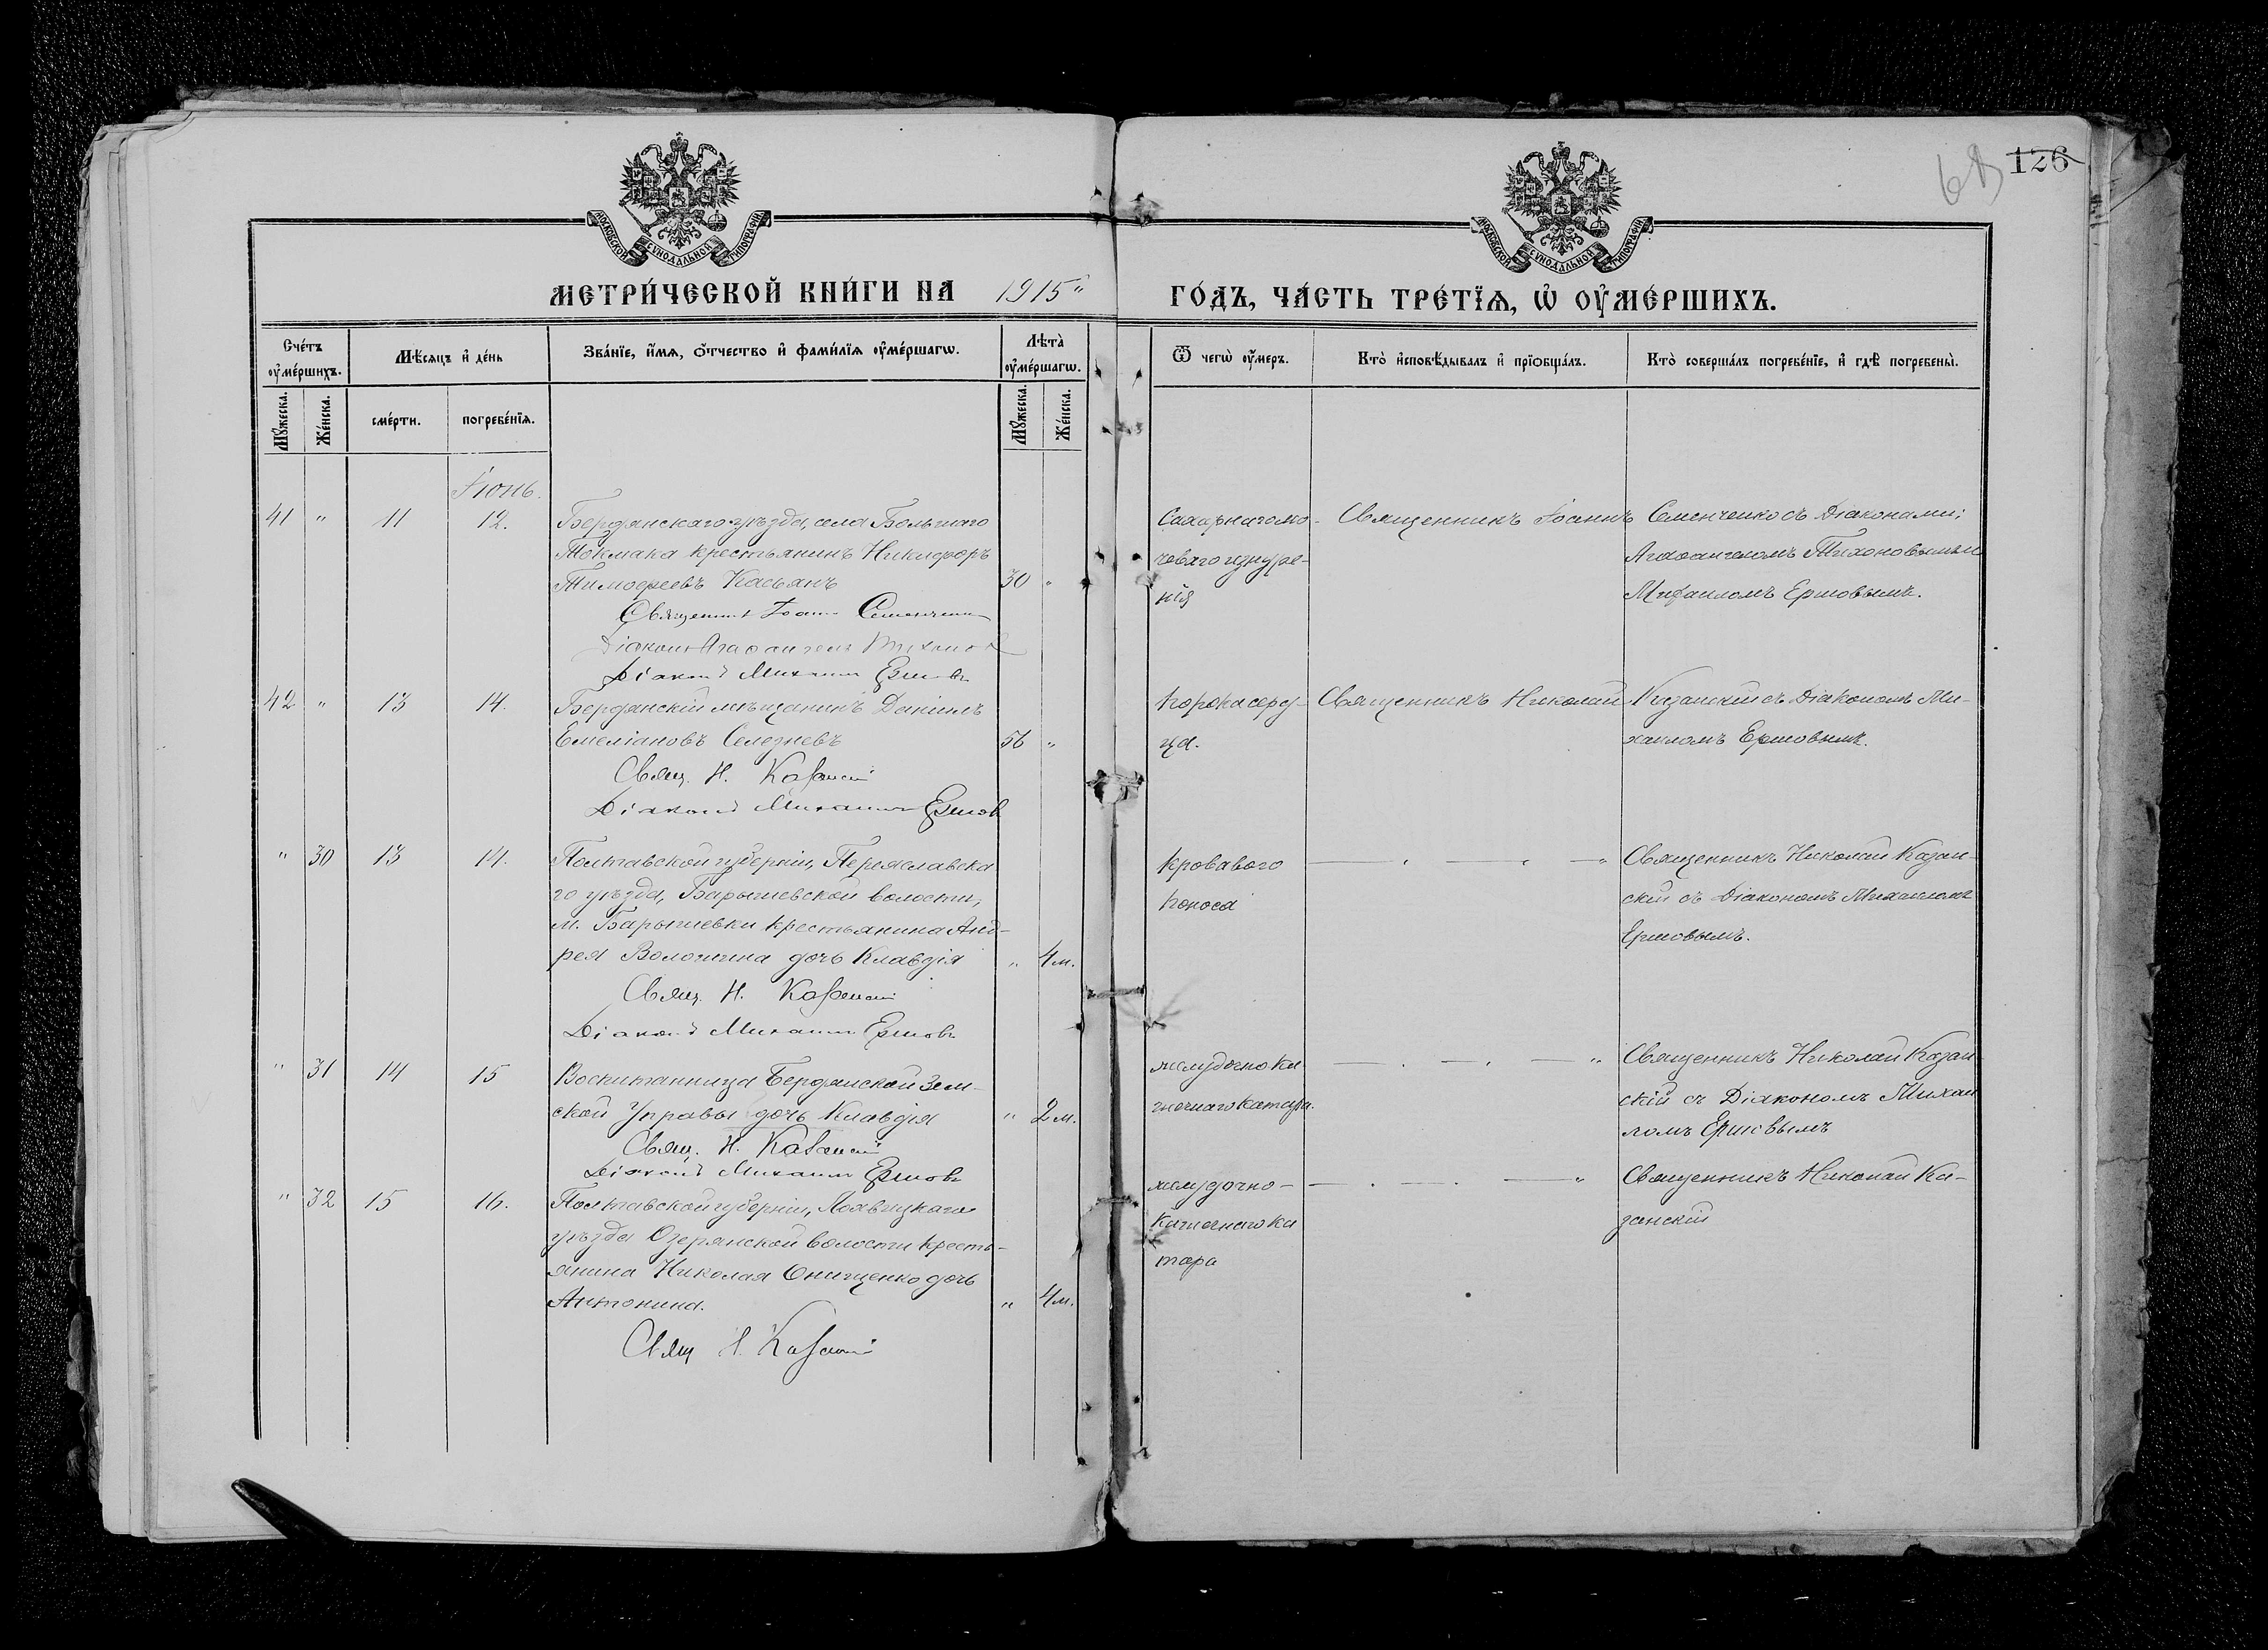 МОСКОВСКОЙ СУНОДАЛЬНОЙ ТИПОГРАФІИ
МОСКОВСКОЙ СУНОДАЛЬНОЙ ТИПОГРАФІИ
126
МЕТРИ́ЧЕСКОЙ КНИ́ГИ НА 1915 "
ГО́ДЪ, ЧА́СТЬ ТРЕ́ТЇѦ, Ѡ҆ ОУ҆МЕ́РШИХЪ.
Сче́тъ оу҆ме́ршихъ.
Мѣ́сѧцъ и҆ де́нь
Зва́нїе, и҆́мѧ, ѻ҆́тчество и҆ фами́лїѧ оу҆ме́ршагѡ.
Лѣ́та оу҆ме́ршагѡ.
Ѿ чегѡ̀ оу҆́меръ.
Кто̀ и҆сповѣ́дывалъ и҆ прїѻбща́лъ.
Кто̀ соверша́лъ погребе́нїе, и҆ гдѣ̀ погребены̀.
Мꙋ́жеска.
Же́нска.
сме́рти.
погребе́нїѧ.
Мꙋ́жеска.
Же́нска.
Іюнь.
41 " 11 12. Бердянскаго уѣзда, села Большаго
Токмака крестьянинъ Никифоръ
Тимофеевъ Касьянъ 30 "
Священникъ Іоаннъ Семенченко
Діаконъ Агафангелъ Тихонов
Діаконъ Михаилъ Ершовъ
Сахарнаго мо-
чеваго изнуре-
нія
Священникъ Іоаннъ Семенченко съ Діаконами:
Агафангеломъ Тихоновымъ и
Михаиломъ Ершовымъ.
42 " 13 14. Бердянскій мѣщанинъ Даніилъ
Емеліановъ Селезневъ 56 "
Свящ. Н. Казанскій
Діаконъ Михаилъ Ершовъ
порока серд-
ца.
Священникъ Николай Казанскій съ Діакономъ Ми-
хаиломъ Ершовымъ.
" 30 13 14. Полтавской губерніи, Переяславска
го уѣзда, Барышевской волости,
м. Барышевки крестьянина Анд-
рея Волошина дочь Клавдія " 4 м.
Свящ. Н. Казанскій
Діаконъ Михаилъ Ершовъ
кровавого
поноса
Священникъ Николай Казан-
скій съ Діакономъ Михаиломъ
Ершовымъ.
" 31 14 15 Воспитанница Бердянской Зем-
ской Управы дочь Клавдія " 2 м.
Свящ. Н. Казанскій
Діаконъ Михаилъ Ершовъ
желудочно ки
шечнаго катара.
Священникъ Николай Казан-
скій съ Діакономъ Михаи
ломъ Ершовымъ
" 32 15 16. Полтавской губерніи, Лохвицкаго
уѣзда Озерянской волости кресть-
янина Николая Онищенко дочь
Антонина. " 4 м.
Свящ Н. Казанскій
желудочно-
кишечнаго ка
тара
Священникъ Николай Ка-
занскій